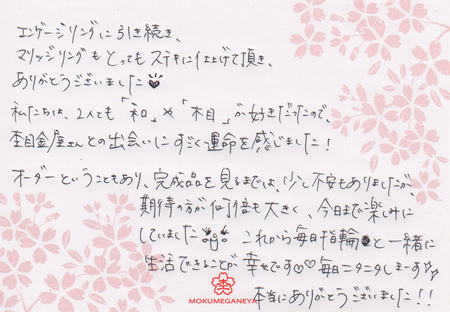 エンゲージリングに引き続き、
マリッジリングもとってもステキに仕上げて頂き、
ありがとうございました
私たちは、2人とも「和」や「木目」が好きだったので、
杢目金屋さんとの出会いにすごく運命を感じました！
オーダーということもあり、完成品を見るまでは、少し不安もありましたが、
期待の方が何倍も大きく、今日まで楽しみに
していました これから毎日指輪と一緒に
生活できることが幸せです♡♡毎日ニタニタしまーす
本当にありがとうございました！！
MOKUMEGANEYA